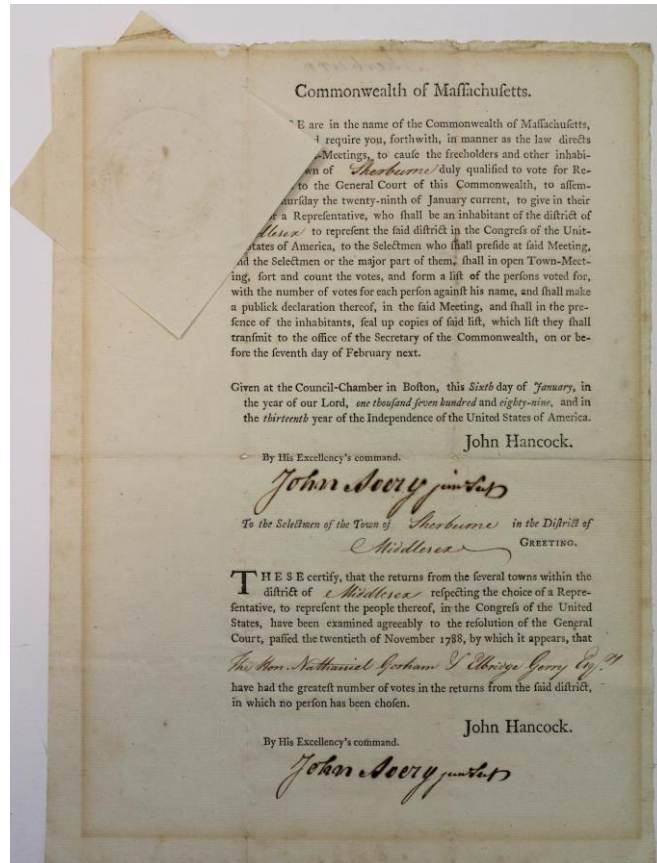 Commonwealth of Maſſachuſetts.
E are in the name of the Commonwealth of Maſſachuſetts,
require you, forthwith, in manner as the law directs
-Meetings, to cauſe the freeholders and other inhabi-
wn of Sherburne duly qualified to vote for Re-
to the General Court of this Commonwealth, to aſſem-
hurſday the twenty-ninth of January current, to give in their
r a Repreſentative, who ſhall be an inhabitant of the diſtrict of
dleſex to repreſent the ſaid diſtrict in the Congreſs of the Unit-
tates of America, to the Selectmen who ſhall preſide at ſaid Meeting,
nd the Selectmen or the major part of them, ſhall in open Town-Meet-
ing, ſort and count the votes, and form a liſt of the perſons voted for,
with the number of votes for each perſon againſt his name, and ſhall make
a publick declaration thereof, in the ſaid Meeting, and ſhall in the pre-
ſence of the inhabitants, ſeal up copies of ſaid liſt, which liſt they ſhall
tranſmit to the office of the Secretary of the Commonwealth, on or be-
fore the ſeventh day of February next.
Given at the Council-Chamber in Boſton, this Sixth day of January, in
the year of our Lord, one thouſand ſeven hundred and eighty-nine, and in
the thirteenth year of the Independence of the United States of America.
John Hancock.
By His Excellency's command.
John Avery junr Secy
To the Selectmen of the Town of Sherburne in the Diſtrict of
Middlesex GREETING.
THESE certify, that the returns from the ſeveral towns within the
diſtrict of Middlesex reſpecting the choice of a Repre-
ſentative, to repreſent the people thereof, in the Congreſs of the United
States, have been examined agreeably to the reſolution of the General
Court, paſſed the twentieth of November 1788, by which it appears, that
The Hon. Nathaniel Gorham & Elbridge Gerry Esqrs
have had the greateſt number of votes in the returns from the ſaid diſtrict,
in which no perſon has been choſen.
John Hancock.
By His Excellency's command.
John Avery junr Secy